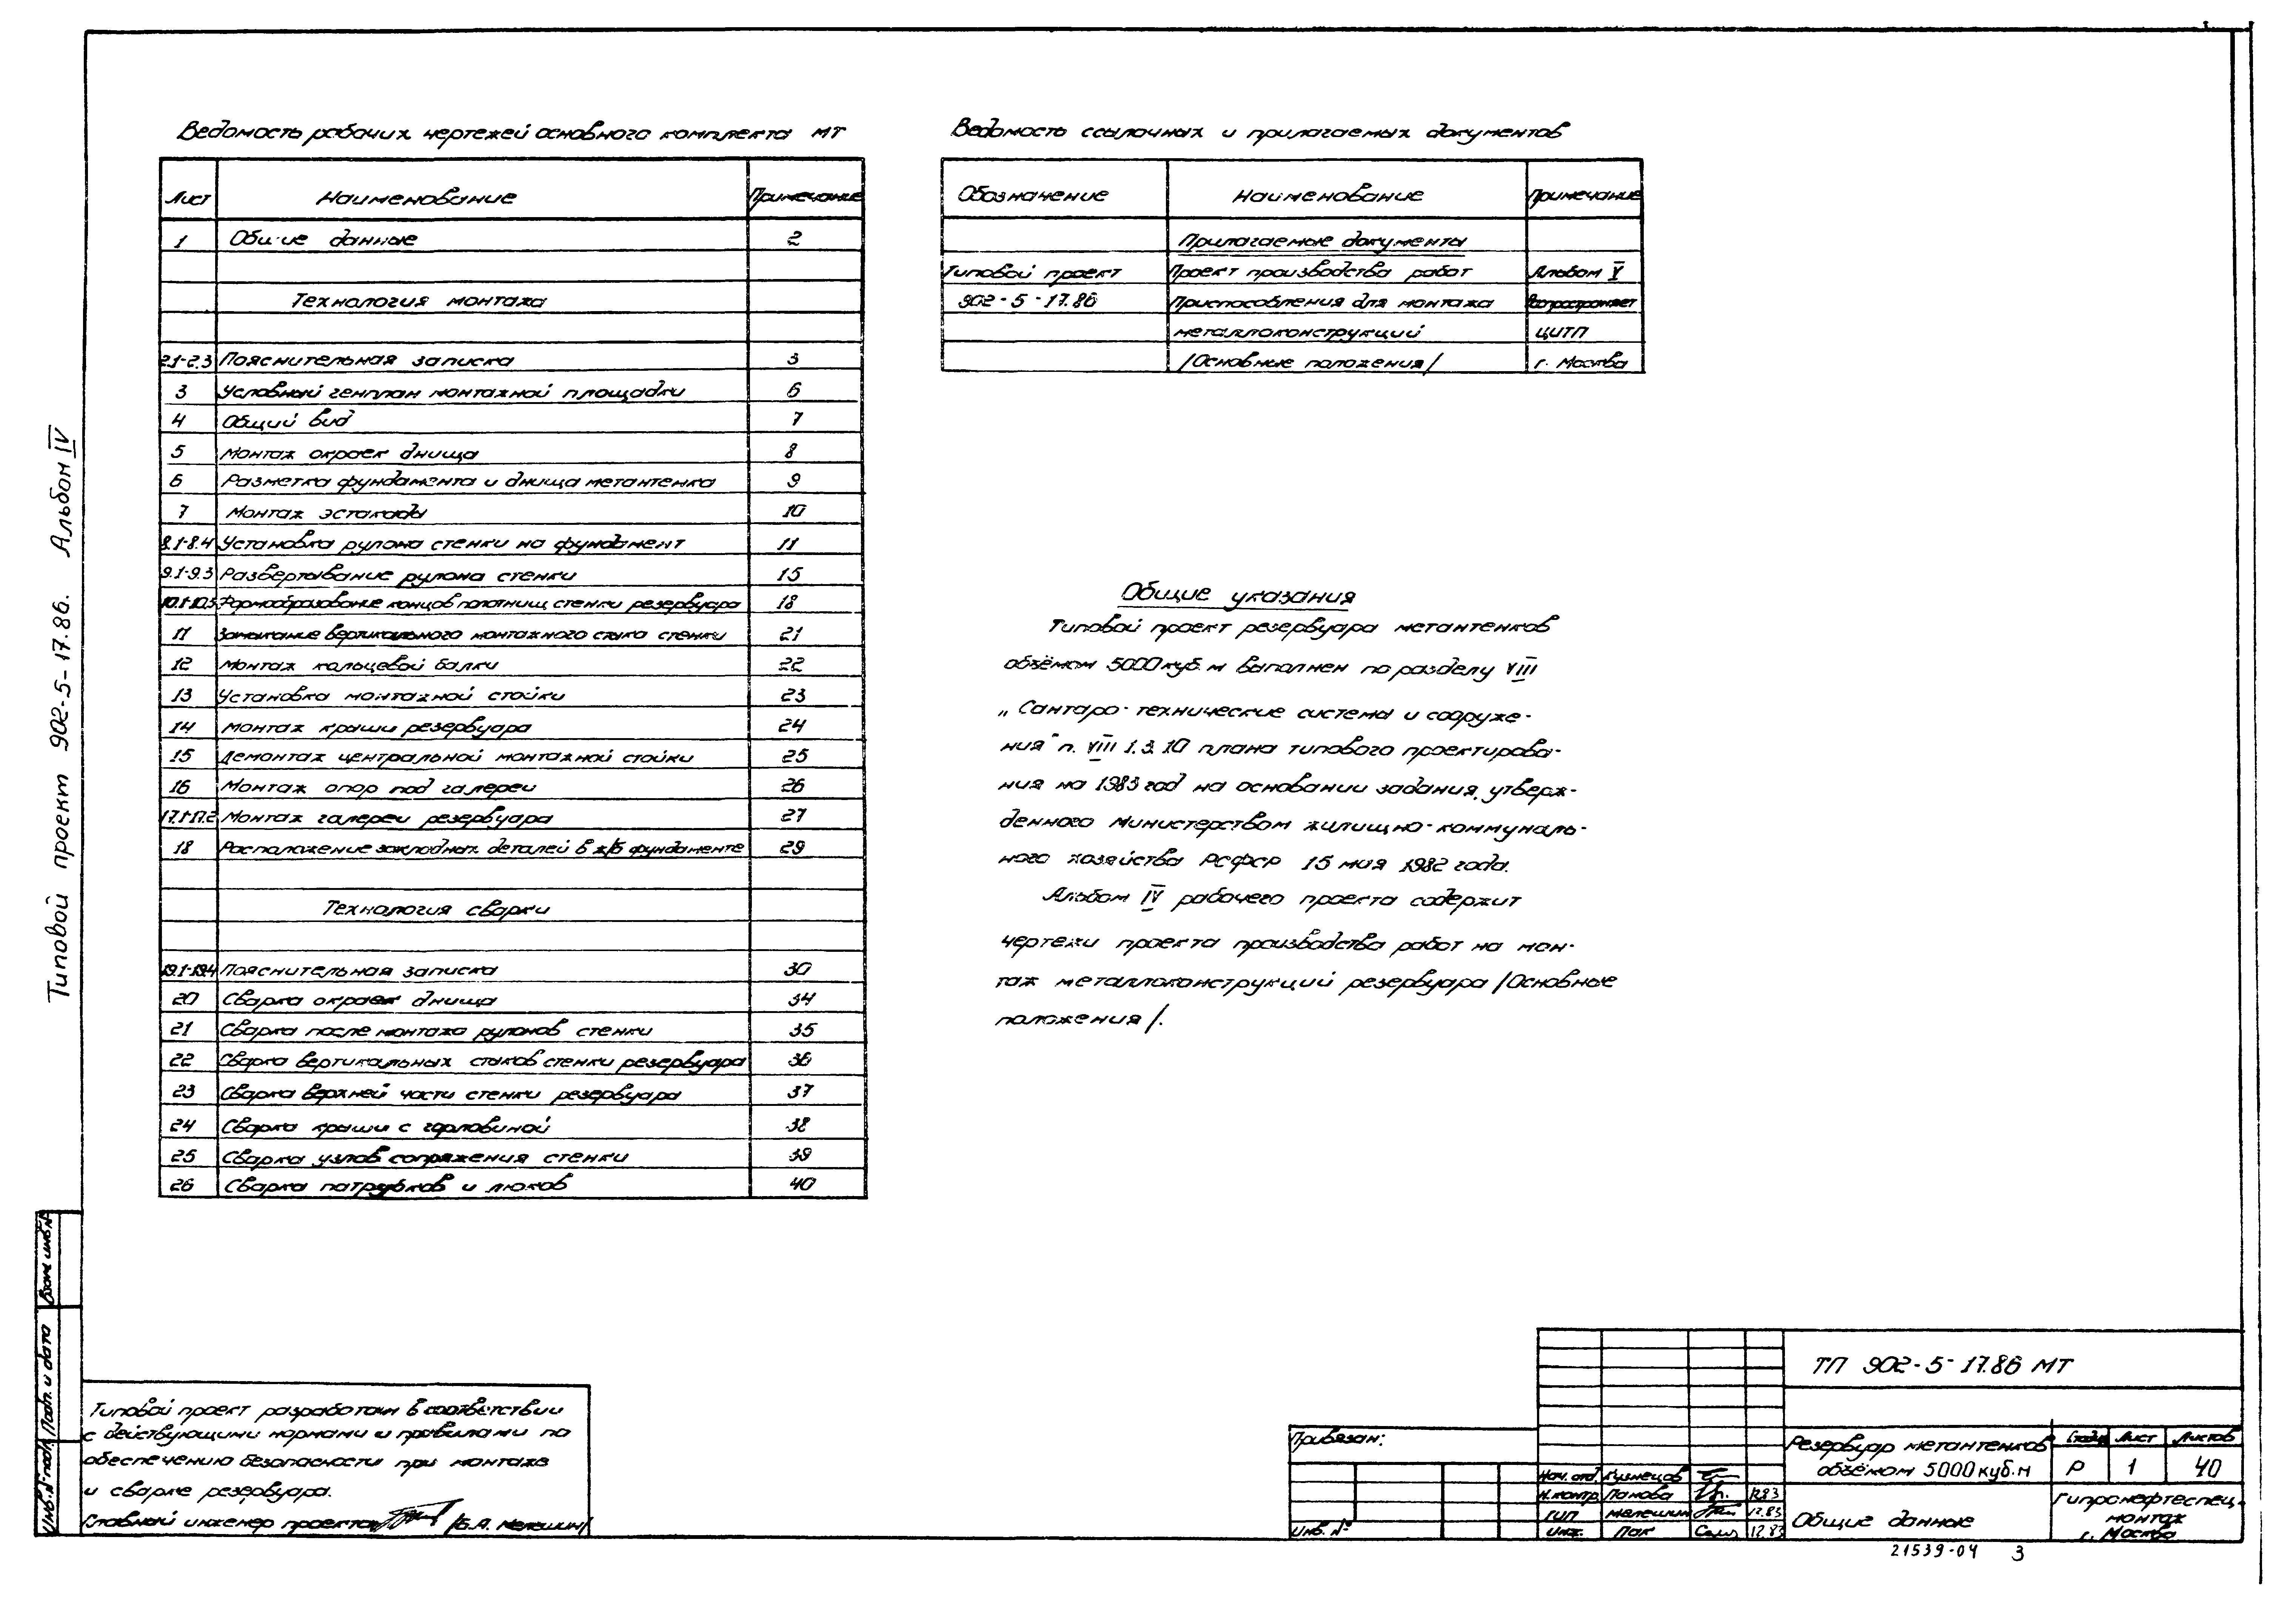 Типовой проект 902-5-17.86. Альбом IV
Ведомость рабочих чертежей основного комплекта МТ
Лист Наименование Примечание
1 Общие данные 2
Технология монтажа
2.1-2.3 Пояснительная записка 3
3 Условный генплан монтажной площадки 6
4 Общий вид 7
5 Монтаж окраек днища 8
6 Разметка фундамента и днища метантенка 9
7 Монтаж эстакады 10
8.1-8.4 Установка рулона стенки на фундамент 11
9.1-9.3 Развертывание рулона стенки 15
10.1-10.3 Формообразование концов полотнищ стенки резервуара 18
11 Замыкание вертикального монтажного стыка стенки 21
12 Монтаж кольцевой балки 22
13 Установка монтажной стойки 23
14 Монтаж крыши резервуара 24
15 Демонтаж центральной монтажной стойки 25
16 Монтаж опор под галереи 26
17.1-17.2 Монтаж галереи резервуара 27
18 Расположение закладных деталей в ж/б фундаменте 29
Технология сварки
19.1-19.4 Пояснительная записка 30
20 Сварка окраек днища 34
21 Сварка после монтажа рулонов стенки 35
22 Сварка вертикальных стыков стенки резервуара 36
23 Сварка верхней части стенки резервуара 37
24 Сварка крыши с горловиной 38
25 Сварка узлов сопряжения стенки 39
26 Сварка патрубков и люков 40
Ведомость ссылочных и прилагаемых документов
Обозначение Наименование Примечание
Прилагаемые документы
Типовой проект Проект производства работ Альбом V
902-5-17.86 Приспособления для монтажа Распространяет
металлоконструкций ЦИТП
/Основные положения/ г. Москва
Общие указания
Типовой проект резервуара метантенков
объёмом 5000 куб. м выполнен по разделу VIII
„Сантаро-технические система и сооруже-
ния" п. VIII 1.3.10 плана типового проектирова-
ния на 1983 год на основании задания, утверж-
денного Министерством жилищно-коммуналь-
ного хозяйства РСФСР 15 мая 1982 года.
Альбом IV рабочего проекта содержит
чертежи проекта производства работ на мон-
таж металлоконструкций резервуара /Основные
положения/.
Взам. инв. №
Подп. и дата
Инв. № подл.
Типовой проект разработан в соответствии
с действующими нормами и правилами по
обеспечению безопасности при монтаже
и сварке резервуара.
Главный инженер проекта /Б.А. Мелешин/
Привязан:
Инв. №
Нач. отд. Кузнецов
Н. контр. Панова 12.83
ГИП Мелешин 12.83
Инж. Пак 12.83
ТП 902-5-17.86 МТ
Резервуар метантенков
объёмом 5000 куб. м
Стадия Лист Листов
Р 1 40
Общие данные
Гипронефтеспец-
монтаж
г. Москва
21539-04 3